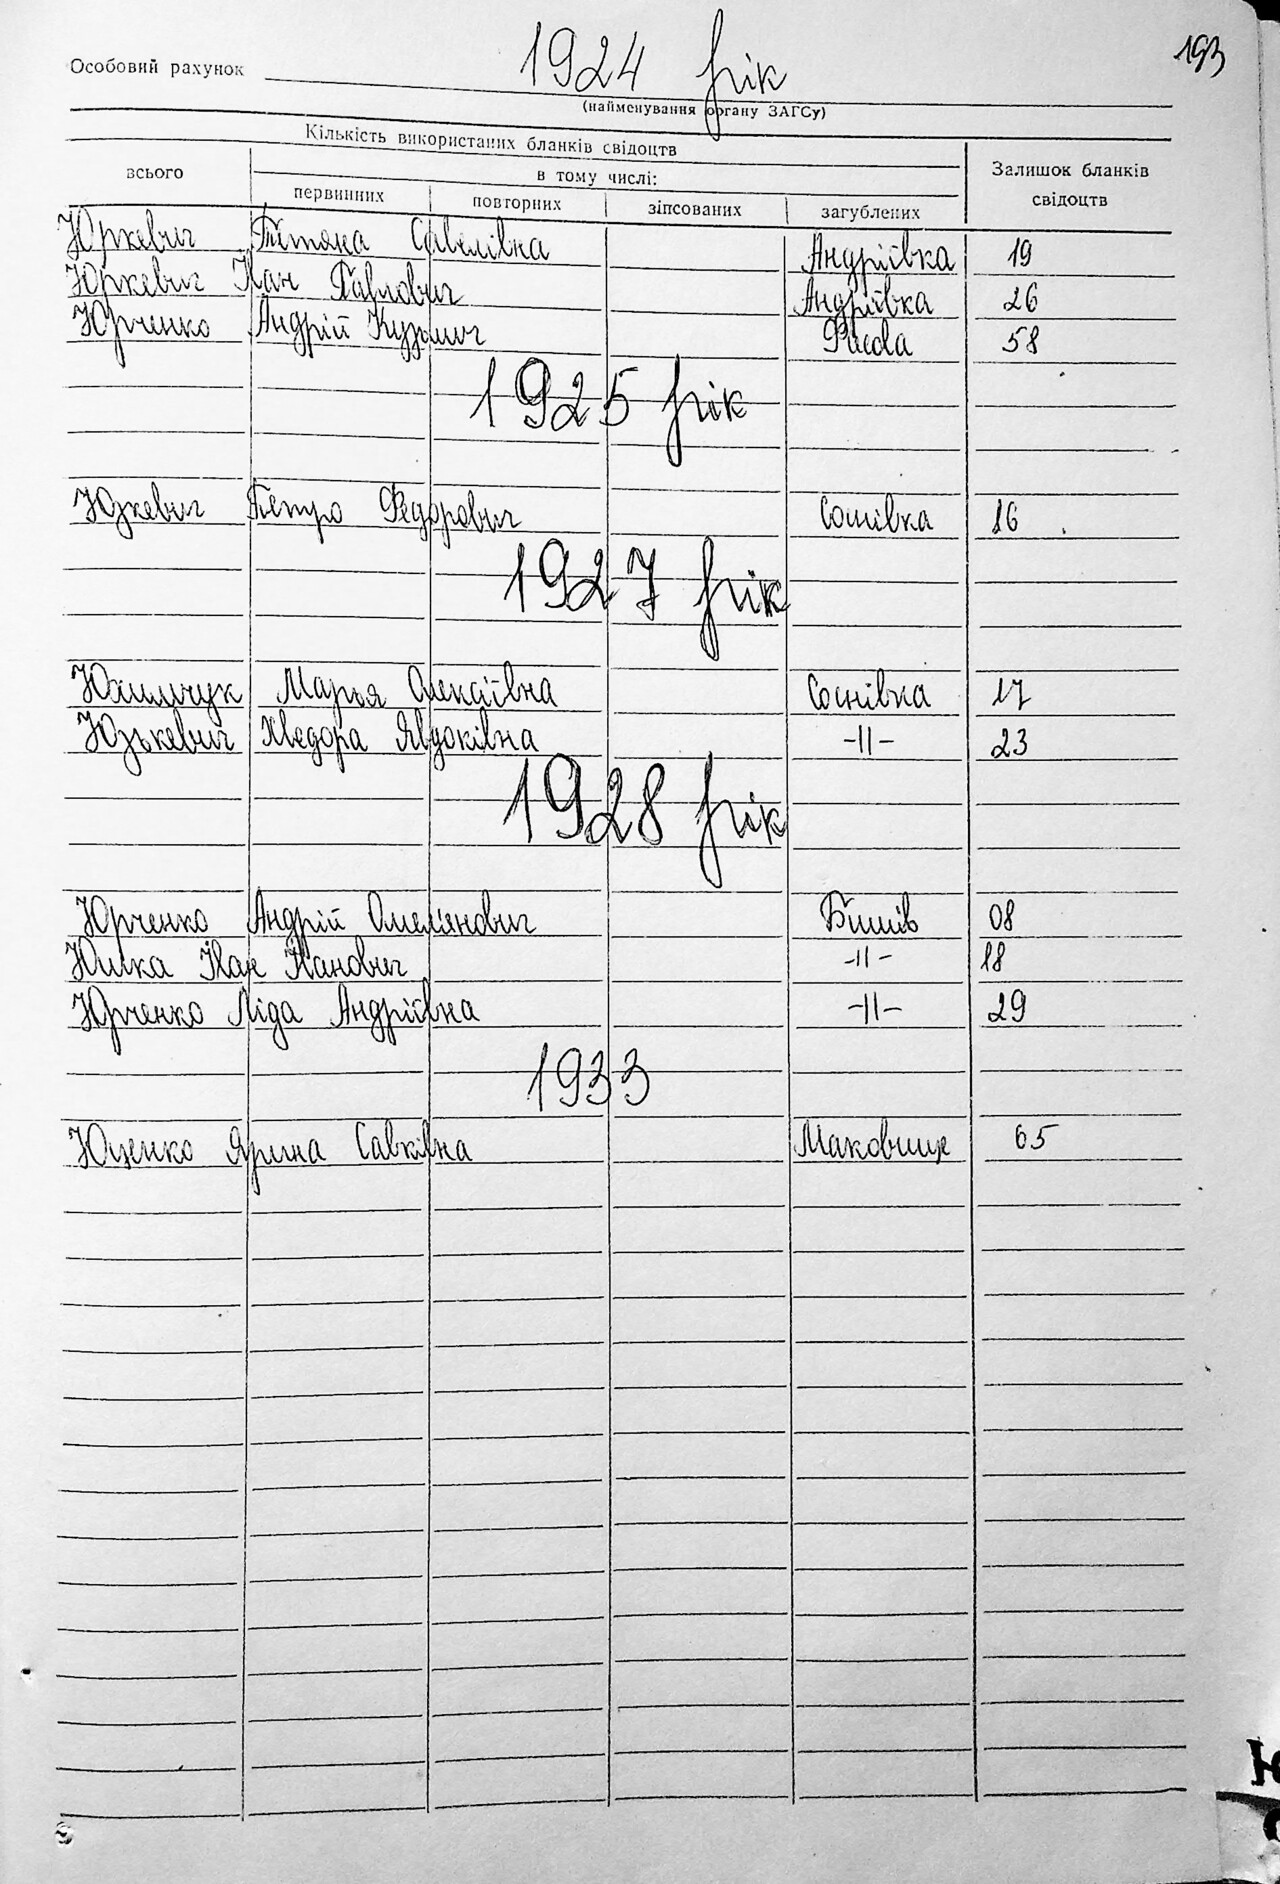 193
1924 рік
Особовий рахунок
(найменування органу ЗАГСу)
Кількість використаних бланків свідоцтв
всього
в тому числі:
Залишок бланків свідоцтв
первинних повторних зіпсованих загублених
Юркевич Тетяна Савелівна Андріївка 19
Юркевич Іван Павлович Андріївка 26
Юрченко Андрій Кузмич Фасова 58
1925 рік
Юзкевич Петро Федорович Соснівка 16
1927 рік
Марья Олексіївна Соснівка 17
Юзькевич Хведора Явдоківна -||- 23
1928 рік
Юрченко Андрій Омелянович Бишів 08
Юшка Іван Іванович -||- 18
Юрченко Ліда Андріївна -||- 29
1933
Юценко Ярина Савківна Маковище 65